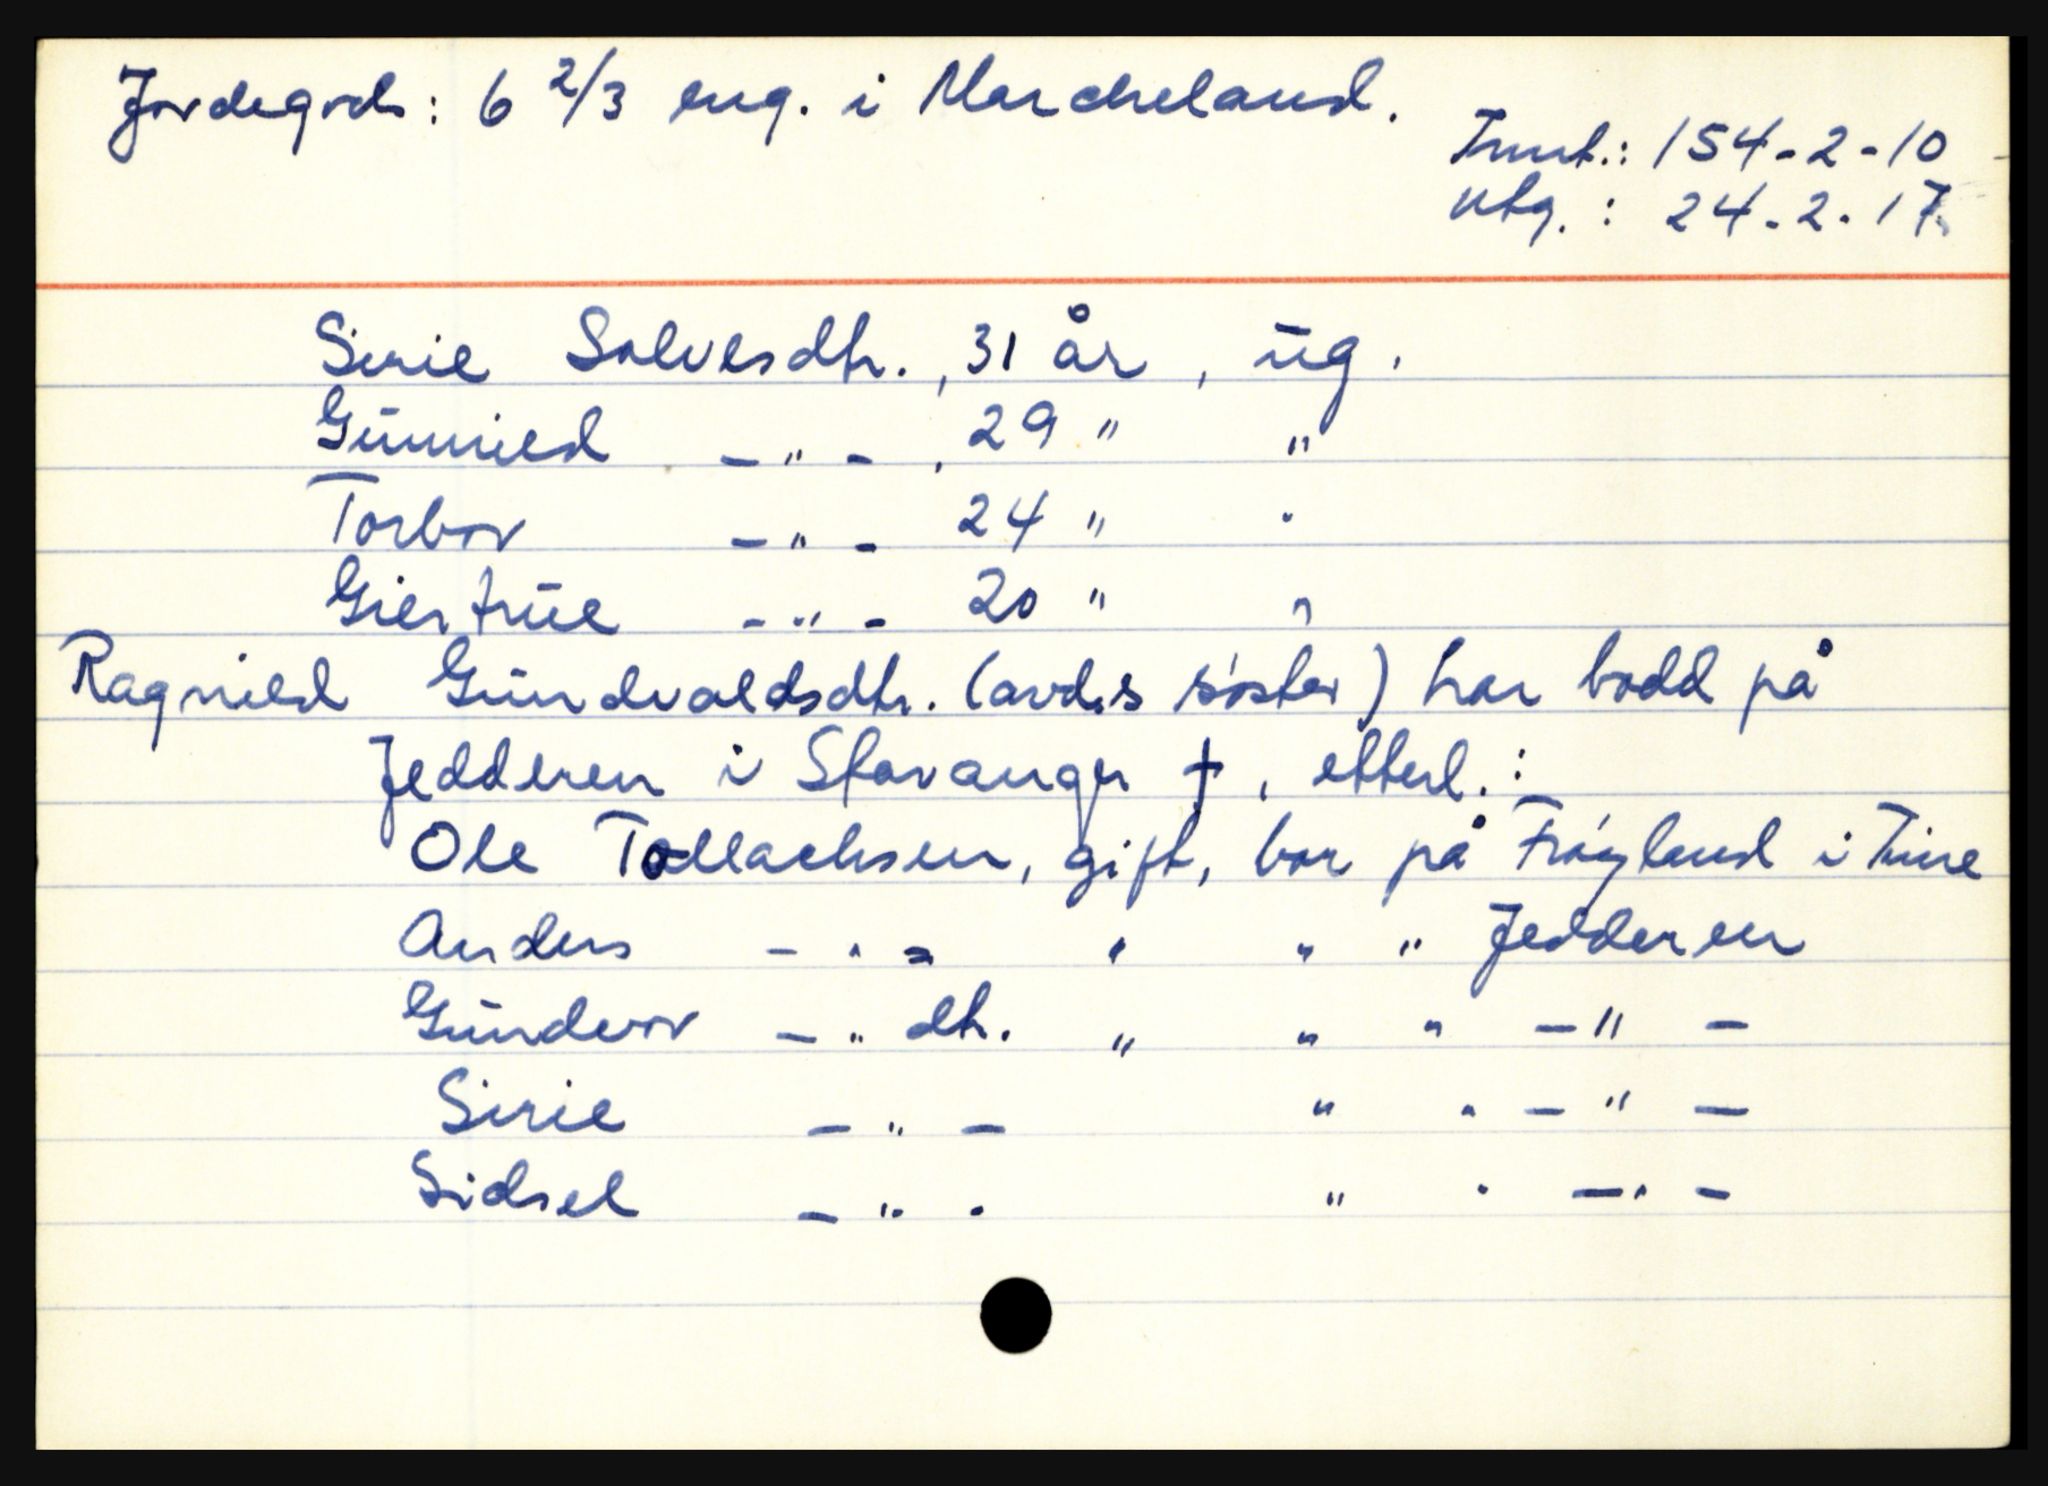 Jordegods: 6 2/3 eng. i Marcheland.
Innt.: 154-2-10
Utg.: 24-2-17
Sirie Solvesdtr., 31 år, ug.
Gunnild -"- , 29 " "
Torbor -"- 24 " "
Giertrue -"- 20 " "
Ragnild Gundvaldsdtr. (avd.s søster) har bodd på
Jedderen i Stavanger †, etterl.:
Ole Tollachsen, gift, bor på Frøyland i Time
Anders -"- " " " Jedderen
Gundvor -" dtr. " " " -"-
Sirie -"- " " -"-
Sidsel -"- " " -"-